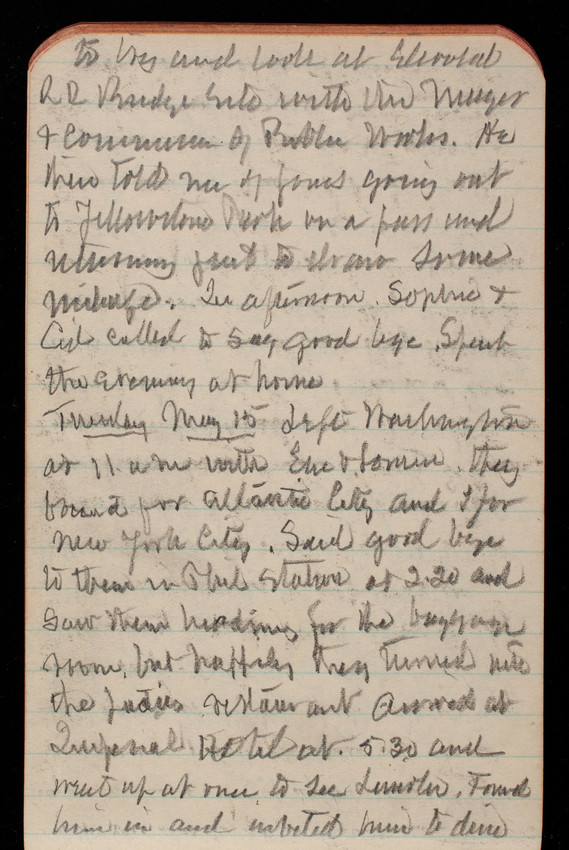 to try and look at Elevated
RR Bridge Site with the Mayor
& Commissioner of Public Works. He
then told me of Jones going out
to Yellowstone Park on a pass and
returning just to draw some
mileage. In afternoon. Sophie &
Cid called to say good bye. Spent
the evening at home
Tuesday May 15 Left Washington
at 11 a m with Eve & Louise. they
bound for Atlantic City and I for
New York City. Said good bye
to them in Phil Station at 2.20 and
saw them heading for the baggage
room, but happily they turned into
the ladies restaurant arrived at
Imperial Hotel at. 5.30 and
went up at once to see Lincoln. Found
him in and invited him to dine